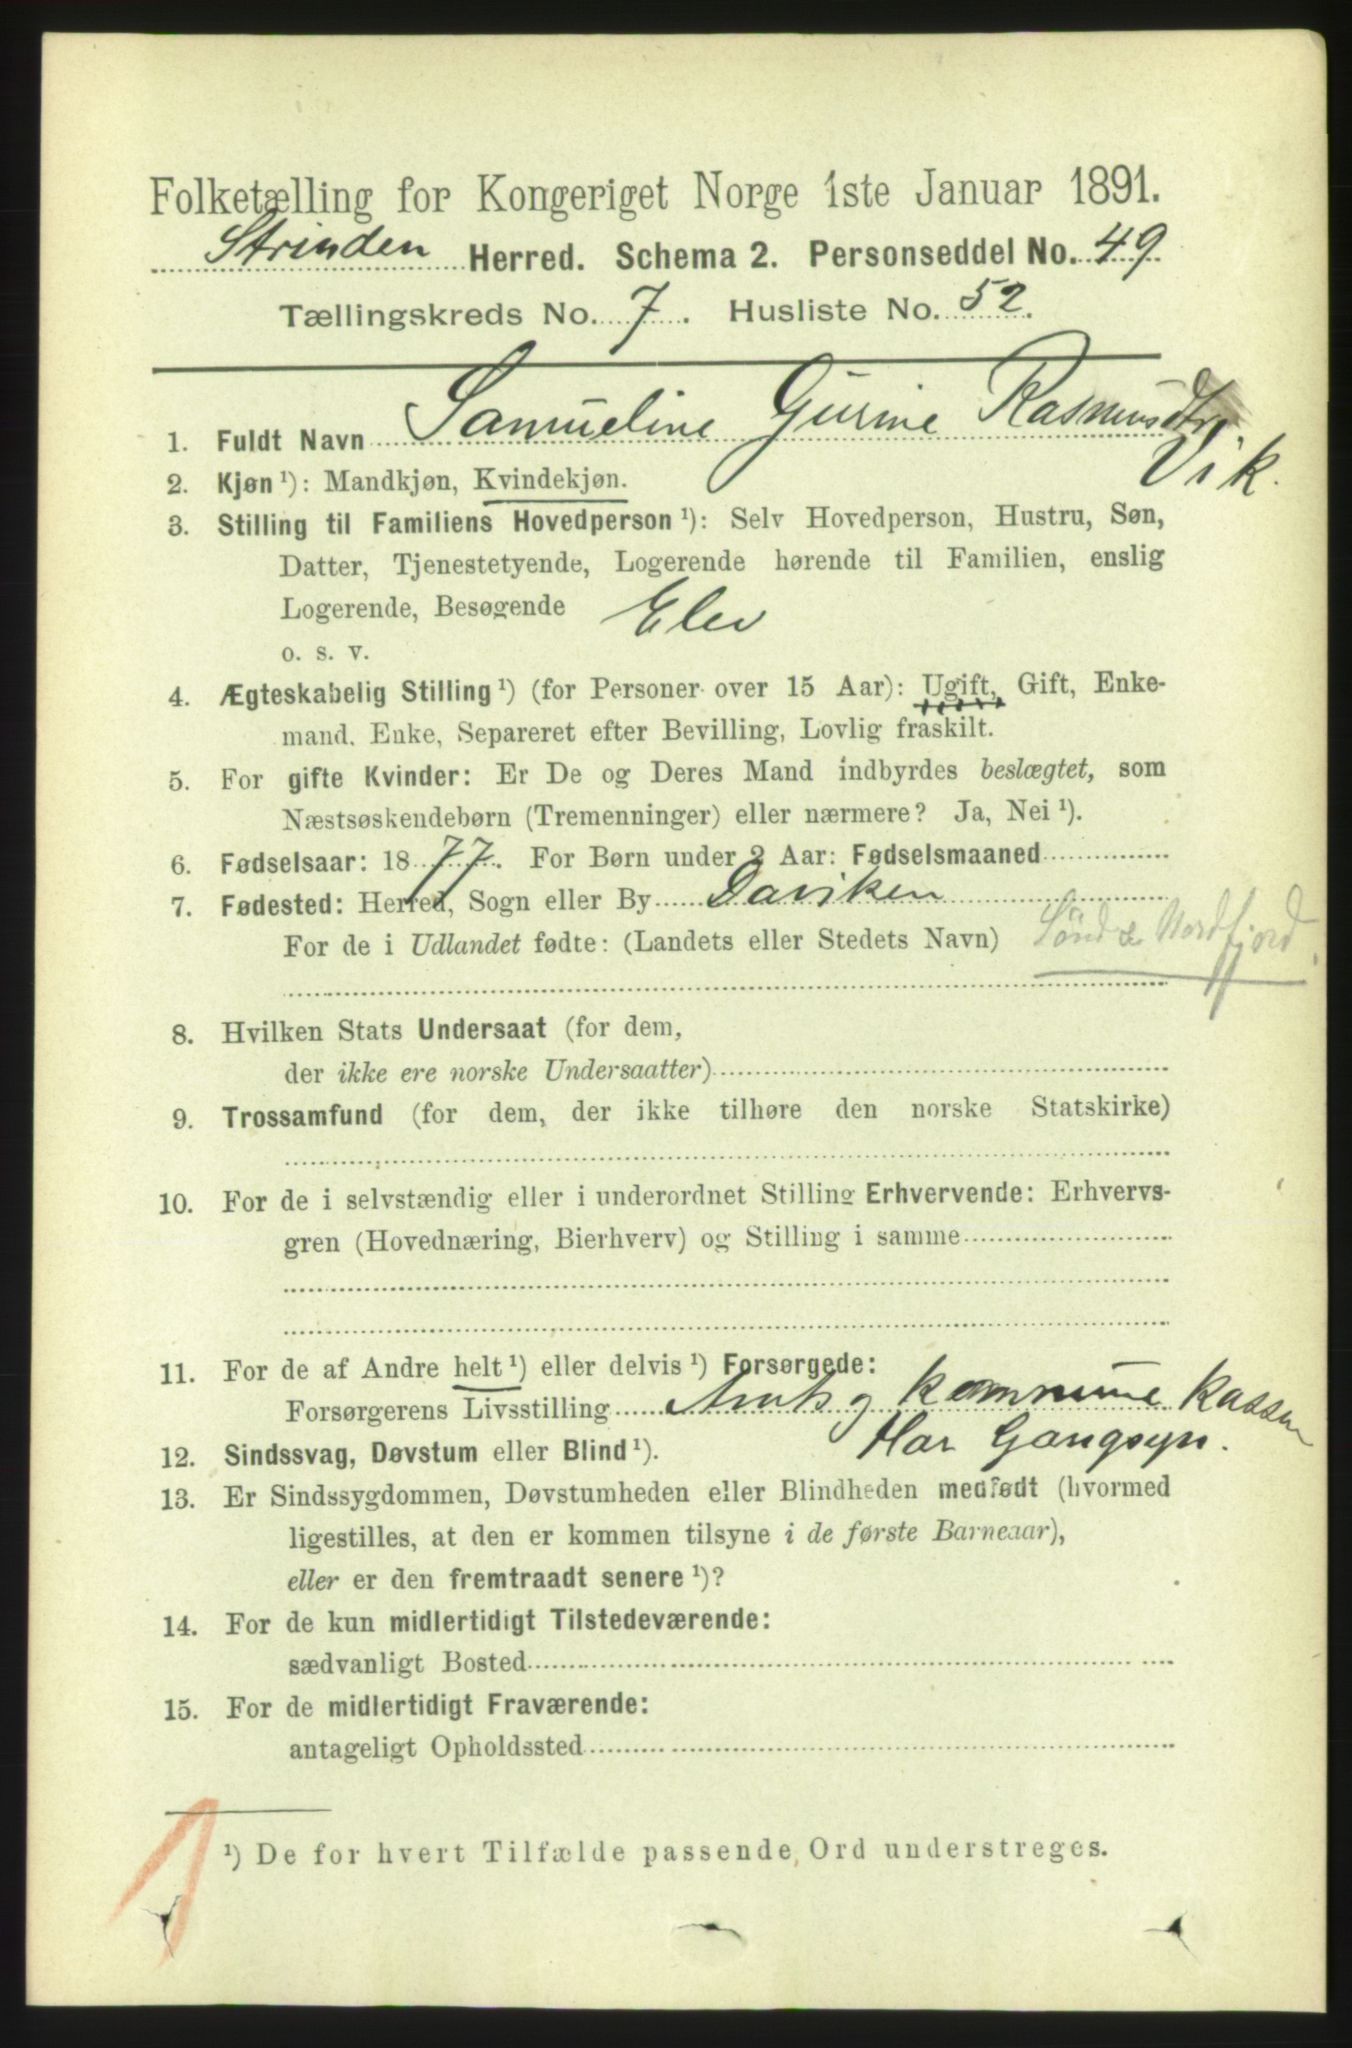 Folketælling for Kongeriget Norge 1ste Januar 1891.
Strinden Herred. Schema 2. Personseddel No. 49
Tællingskreds No. 7. Husliste No. 52.
1. Fuldt Navn Samueline Gurine Rasmusdtr
Vik.
2. Kjøn ¹): Mandkjøn, Kvindekjøn.
3. Stilling til Familiens Hovedperson ¹): Selv Hovedperson, Hustru, Søn,
Datter, Tjenestetyende, Logerende hørende til Familien, enslig
Logerende, Besøgende Elev
o. s. v.
4. Ægteskabelig Stilling ¹) (for Personer over 15 Aar): Ugift, Gift, Enke-
mand, Enke, Separeret efter Bevilling, Lovlig fraskilt.
5. For gifte Kvinder: Er De og Deres Mand indbyrdes beslægtet, som
Næstsøskendebørn (Tremenninger) eller nærmere? Ja, Nei ¹).
6. Fødselsaar: 1877. For Børn under 2 Aar: Fødselsmaaned
7. Fødested: Herred, Sogn eller By Daviken
For de i Udlandet fødte: (Landets eller Stedets Navn) Sønd & Nordfjord.
8. Hvilken Stats Undersaat (for dem,
der ikke ere norske Undersaatter)
9. Trossamfund (for dem, der ikke tilhøre den norske Statskirke)
10. For de i selvstændig eller i underordnet Stilling Erhvervende: Erhvervs-
gren (Hovednæring, Bierhverv) og Stilling i samme
11. For de af Andre helt ¹) eller delvis ¹) Forsørgede:
Forsørgerens Livsstilling Amts og kommune Kassen
12. Sindssvag, Døvstum eller Blind ¹). Har Gangsyn.
13. Er Sindssygdommen, Døvstumheden eller Blindheden medfødt (hvormed
ligestilles, at den er kommen tilsyne i de første Barneaar),
eller er den fremtraadt senere ¹)?
14. For de kun midlertidigt Tilstedeværende:
sædvanligt Bosted
15. For de midlertidigt Fraværende:
antageligt Opholdssted
¹) De for hvert Tilfælde passende Ord understreges.
1